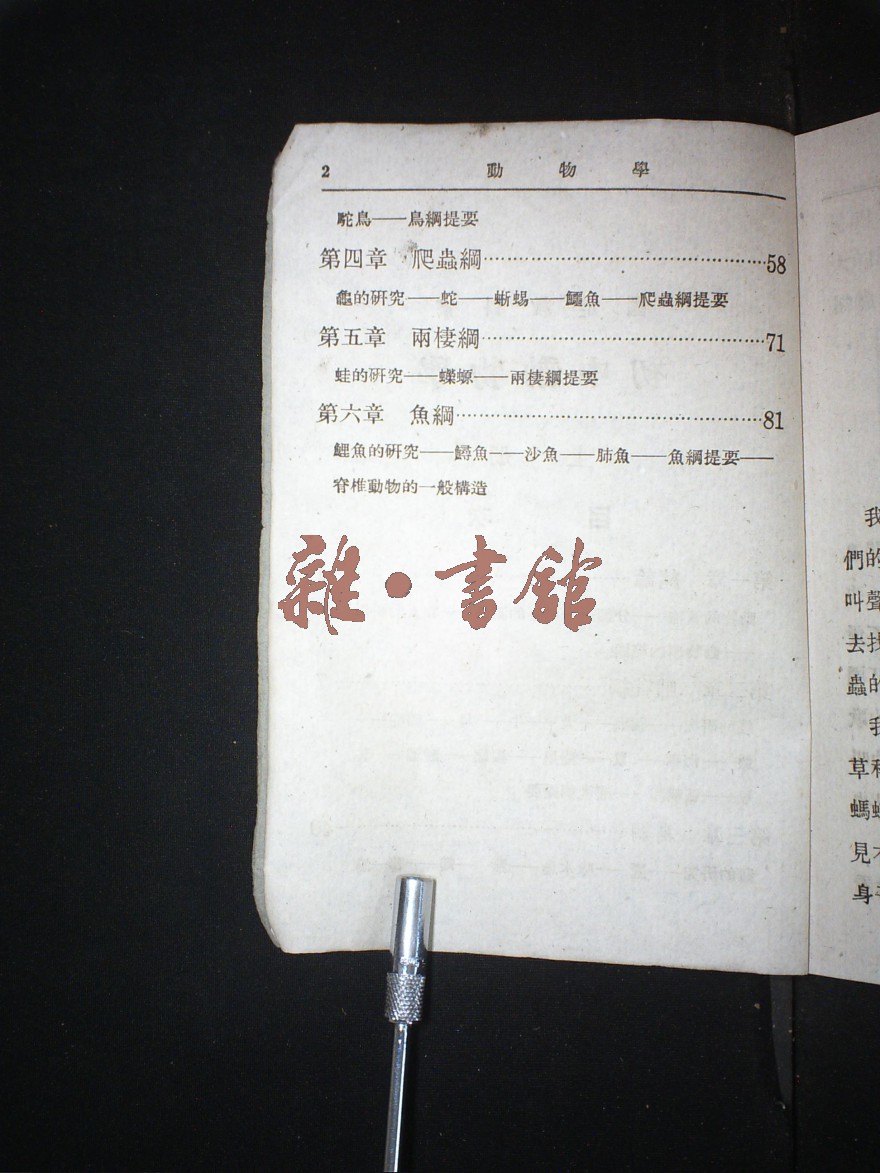 2 動物學
駝鳥——鳥綱提要
第四章 爬蟲綱……………………………………58
龜的硏究——蛇——蜥蜴——鱷魚——爬蟲綱提要
第五章 兩棲綱……………………………………71
蛙的硏究——蠑螈——兩棲綱提要
第六章 魚綱………………………………………81
鯉魚的硏究——鱘魚——沙魚——肺魚——魚綱提要——
脊椎動物的一般構造
雜·書舘
我
們的
叫聲
去找
蟲的
我
草
見
身